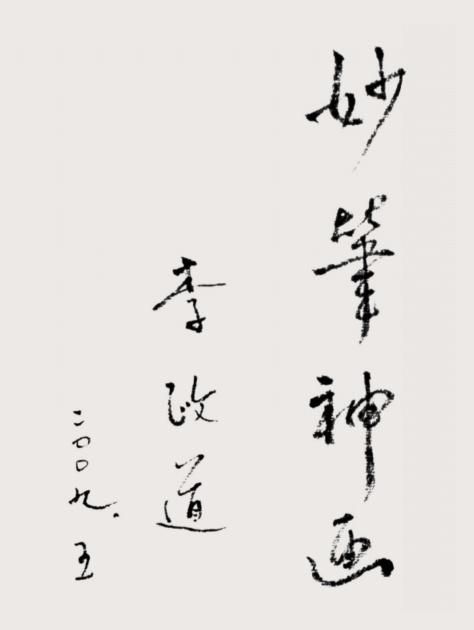 妙筆神画
李政道
二〇〇九.五